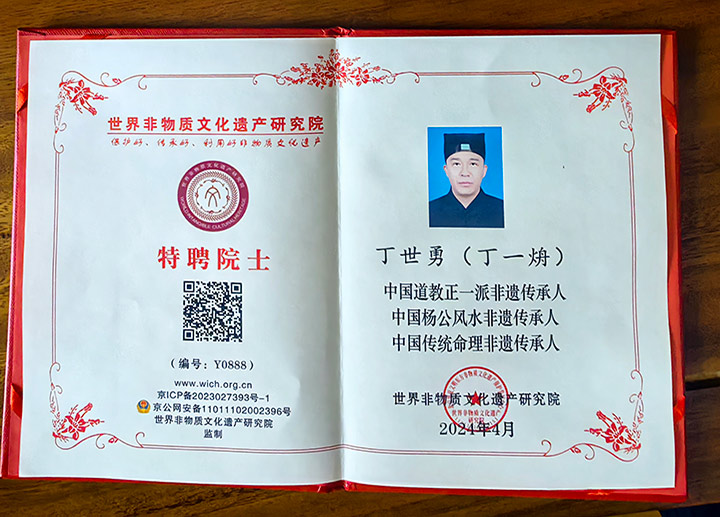 世界非物质文化遗产研究院
保护好、传承好、利用好非物质文化遗产
特聘院士
(编号:Y0888)
www.wich.org.cn
京ICP备2023027393号-1
京公网安备11011102002396号
世界非物质文化遗产研究院
监制
丁世勇(丁一焫)
中国道教正一派非遗传承人
中国杨公风水非遗传承人
中国传统命理非遗传承人
世界非物质文化遗产研究院
2024年4月